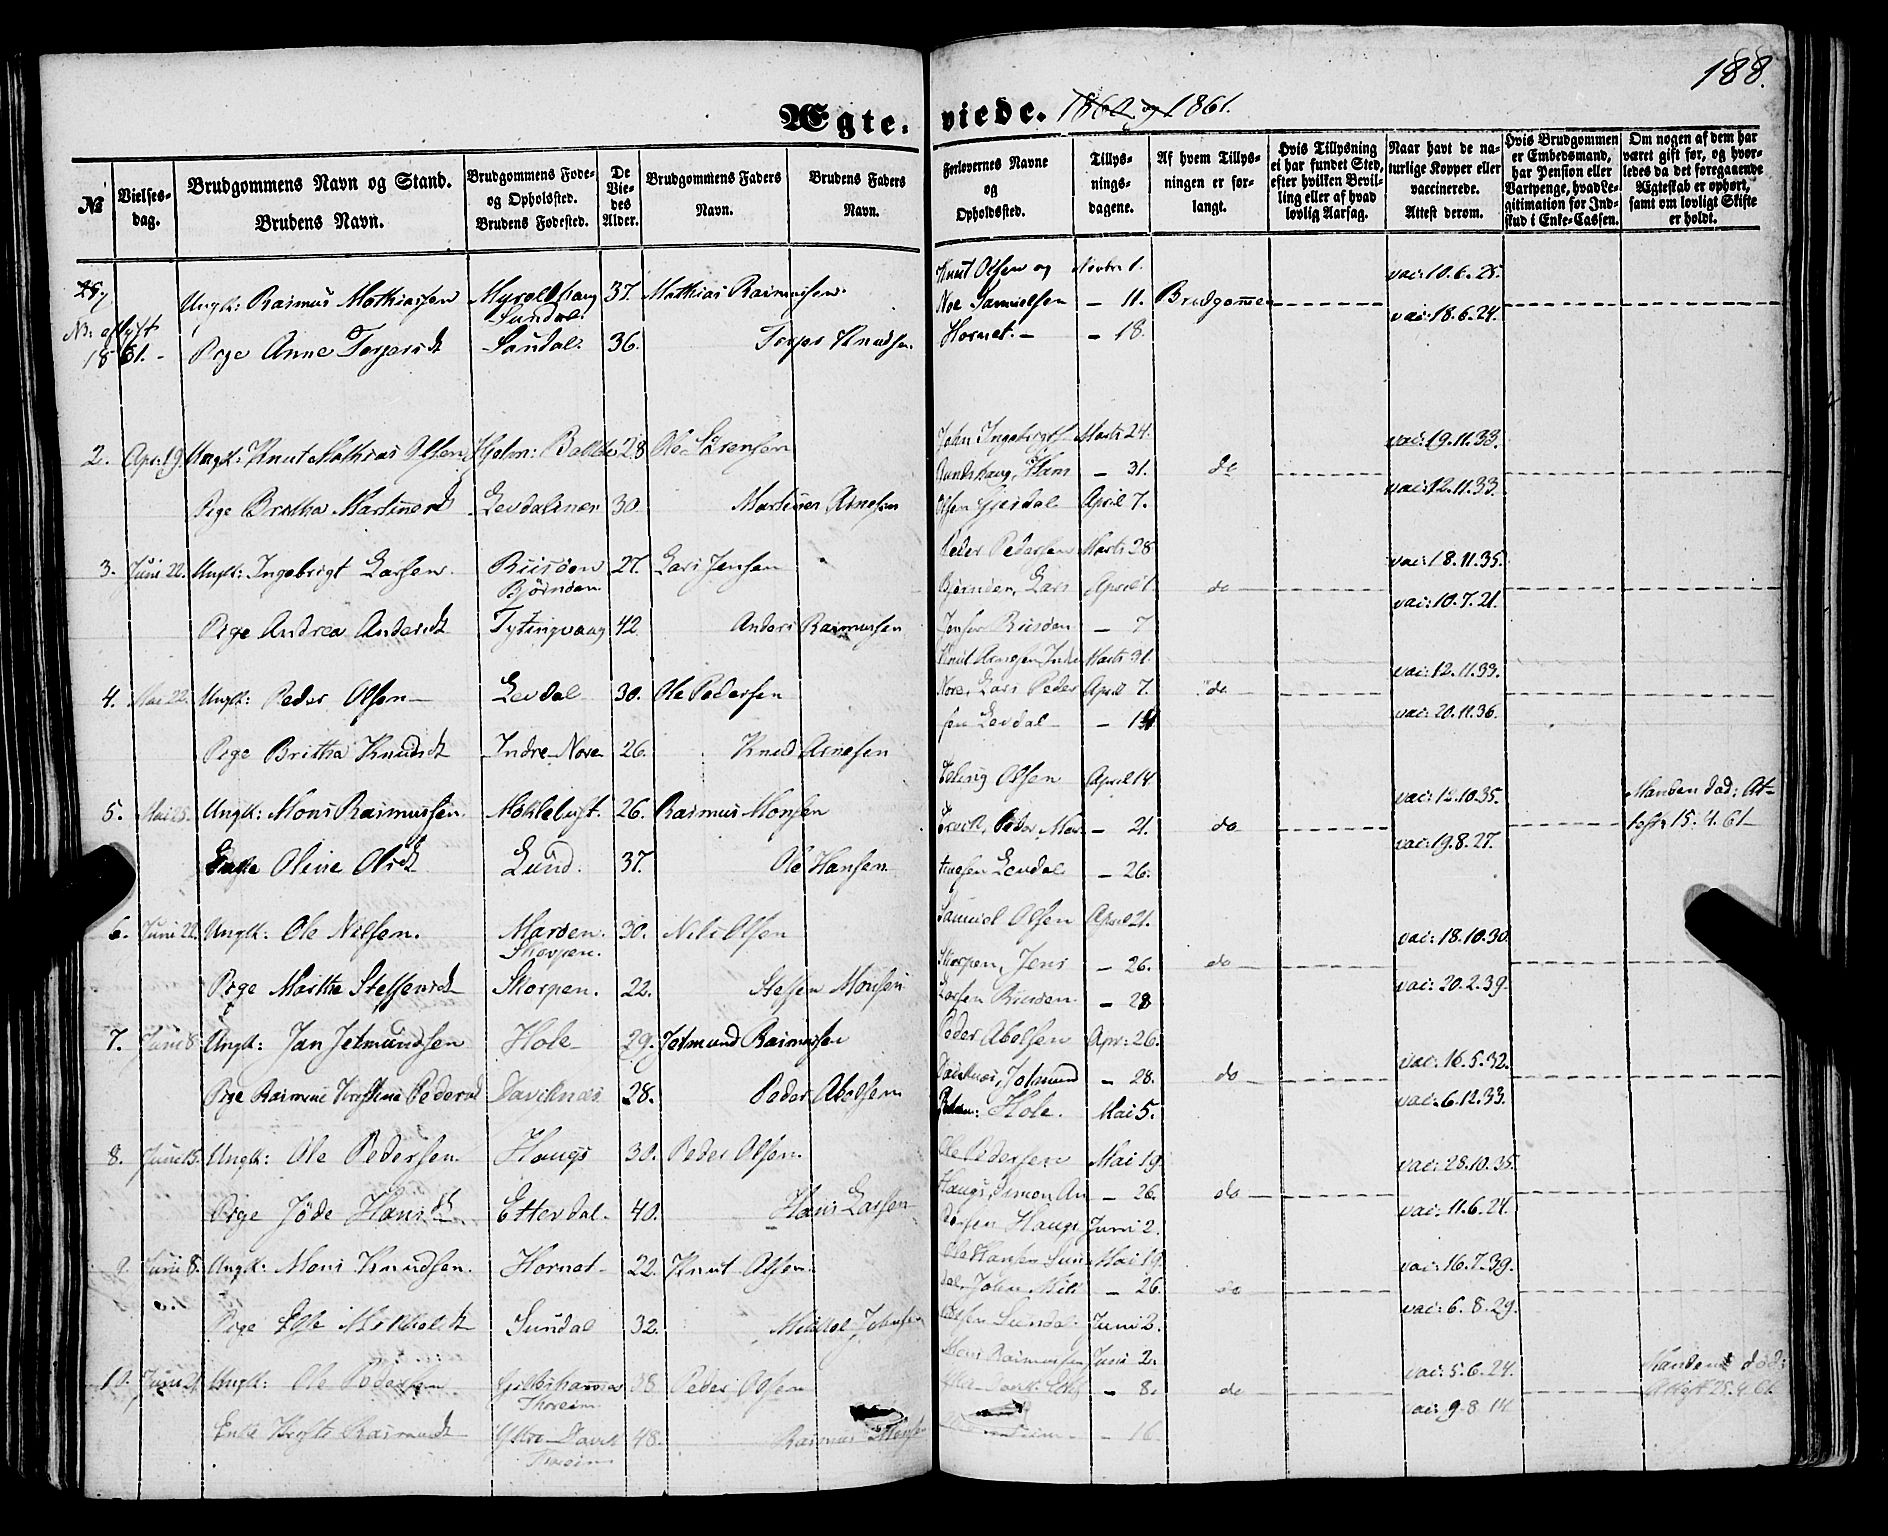 188.
Ægte- viede. 1860 og 1861.
№
Vielses-dag.
Brudgommens Navn og Stand.
Brudens Navn.
Brudgommens Føde- og Opholdsted.
Brudens Fødested.
De Vie-des Alder.
Brudgommens Faders Navn.
Brudens Faders Navn.
Forlovernes Navne og Opholdsted.
Tillys-nings-dagene.
Af hvem Tillys-ningen er for-langt.
Hvis Tillysning ei har fundet Sted, efter hvilken Bevil-ling eller af hvad lovlig Aarsag.
Naar havt de na-turlige Kopper eller vaccinerede. Attest derom.
Hvis Brudgommen er Embedsmand, har Pension eller Vartpenge, hvad Le-gitimation for Ind-skud i Enke-Cassen.
Om nogen af dem har været gift før, og hvor-ledes da det foregaaende Ægteskab er ophørt, samt om lovligt Skifte er holdt.
Ungk: Rasmus Mathiassen 37. Mathias Rasmussen Knut Olsen og Novbr 1. vac: 10.6.28.
Sundal. Noe Samuelsen — 11. Brudgommen vac: 18.6.24.
1861. Pige Anne Torgersdt Sundal 36. Torger Knudsen Hornet — 18.
2. Apr: 19. Ungk: Knut Mathias Olsen 28 Ole Sørensen John Marts 24. vac: 19.11.33.
Hans — 31. do
Pige Brithe Martinesdt 30. Martinus Arnesen Olsen April 7. vac: 12.11.33.
3. Juni 22. Ungk: Ingebrigt Larsen Riisøen Bjørndøn 27. Lars Jensen Peder Pedersen Marts 28 vac: 18.11.35.
Lars April 1. do
Pige Andrea Andersdt Tytingvaag 42 Anders Rasmussen Jensen Riisøen — 7 vac: 10.7.21.
4. Mai 22. Ungk: Peder Olsen Levdal 30. Ole Pedersen Knut Arnesen Indre Marts 31. vac: 12.11.33.
Nore, Lars Peder April 7. do
Pige Brithe Knudsdt Indre Nore 26. Knud Arnesen sen Levdal — 14 vac: 20.11.36.
5. Mai 25. Ungk: Mons Rasmussen Møklebust. 26. Rasmus Monsen Olsen April 14 vac: 12.10.35. Manden død: At-
Peder Mar — 21. do test 15.4.61
Enke Oline Olsdt Lund. 37. Ole Hansen tinesen Levdal — 26. vac: 19.8.27.
6. Juni 22. Ungk: Ole Nilsen. Maroen. Skorpen. 30. Nils Olsen Samuel Olsen April 21. vac: 18.10.30.
Skorpen, Jens — 26. do
Pige Marthe Steffensdt Skorpen. 22. Steffen Monsen Larsen Riisøen — 28 vac: 20.2.39.
7. Juni 8 Ungk: Jan Jetmundsen Hole 29. Jetmund Rasmussen Peder Abelsen Apr: 26. vac: 16.5.32.
Daviknæs, Jetmund — 28. do
Pige Rasmine Pedersdt Daviknæs 28. Peder Abelsen Hole. Mai 5. vac. 6.12.33.
8. Juni 15. Ungk: Ole Pedersen Haugs 30. Peder Olsen. Ole Pedersen Mai 19. vac: 28.10.35.
Haugs, Simon An — 26. do
Pige Jøde Hansdt Ytterdal. 40. Hans Larsen dersen Haugs Juni 2. vac: 11.6.24.
9. Juni 8. Ungk: Mons Knudsen. Hornet 22. Knut Olsen. Ole Hansen Sun Mai 19. vac: 16.7.39.
dal, John Nils — 26. do
Pige Else Mikkelsdt Sundal 32. Mikkel Johnsen Sundal Juni 2. vac: 6.8.29.
10. Juni 21. Ungk: Ole Pedersen 38. Peder Olsen Mons Rasmussen Juni 2. vac: 5.6.24. Manden død:
Thoreim — 8. do Attest 25.4.61
Enke Rasmusdt Ytre Davik 48. Rasmus Monsen — 16. vac: 9.8.14